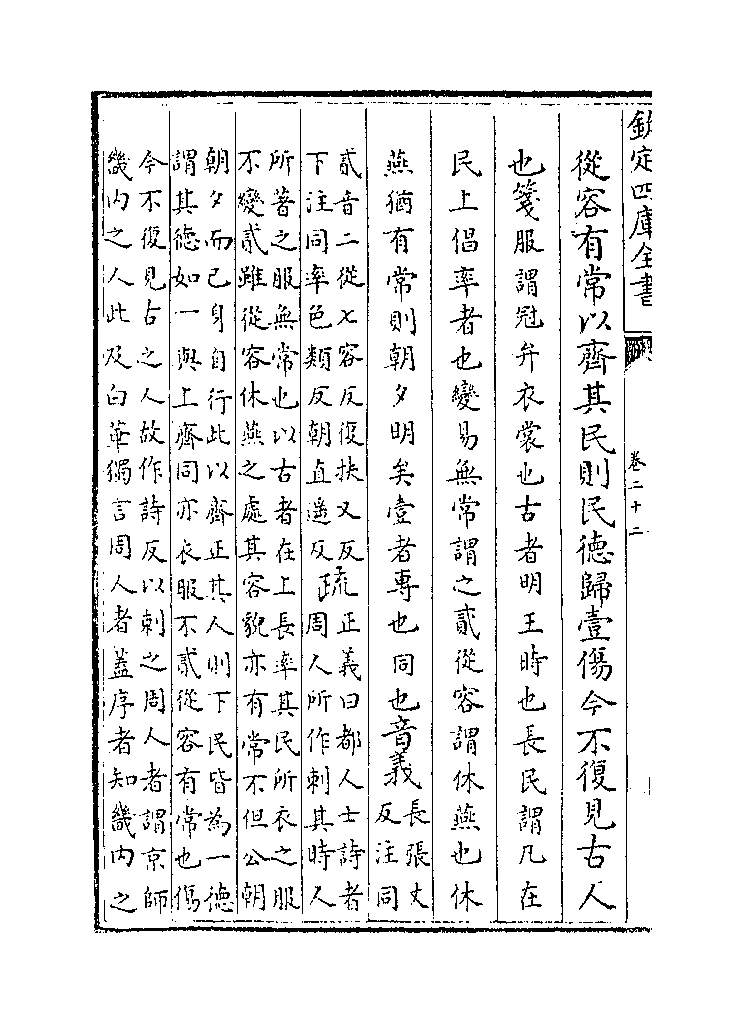 欽定四庫全書
卷二十二
從容有常以齊其民則民德歸壹傷今不復見古人
也箋服謂冠弁衣裳也古者明王時也長民謂凡在
民上倡率者也變易無常謂之貳從容謂休燕也休
燕猶有常則朝夕明矣壹者專也同也音義長張丈
反注同
貳音二從七容反復扶又反
下注同率色類反朝直遥反疏正義曰都人士詩者
周人所作刺其時人
所著之服無常也以古者在上長率其民所衣之服
不變貳雖從容休燕之處其容貌亦有常不但公朝
朝夕而已身自行此以齊正其人則下民皆為一德
謂其德如一與上齊同亦衣服不貳從容有常也傷
今不復見古之人故作詩反以刺之周人者謂京師
畿内之人此及白華獨言周人者葢序者知畿内之